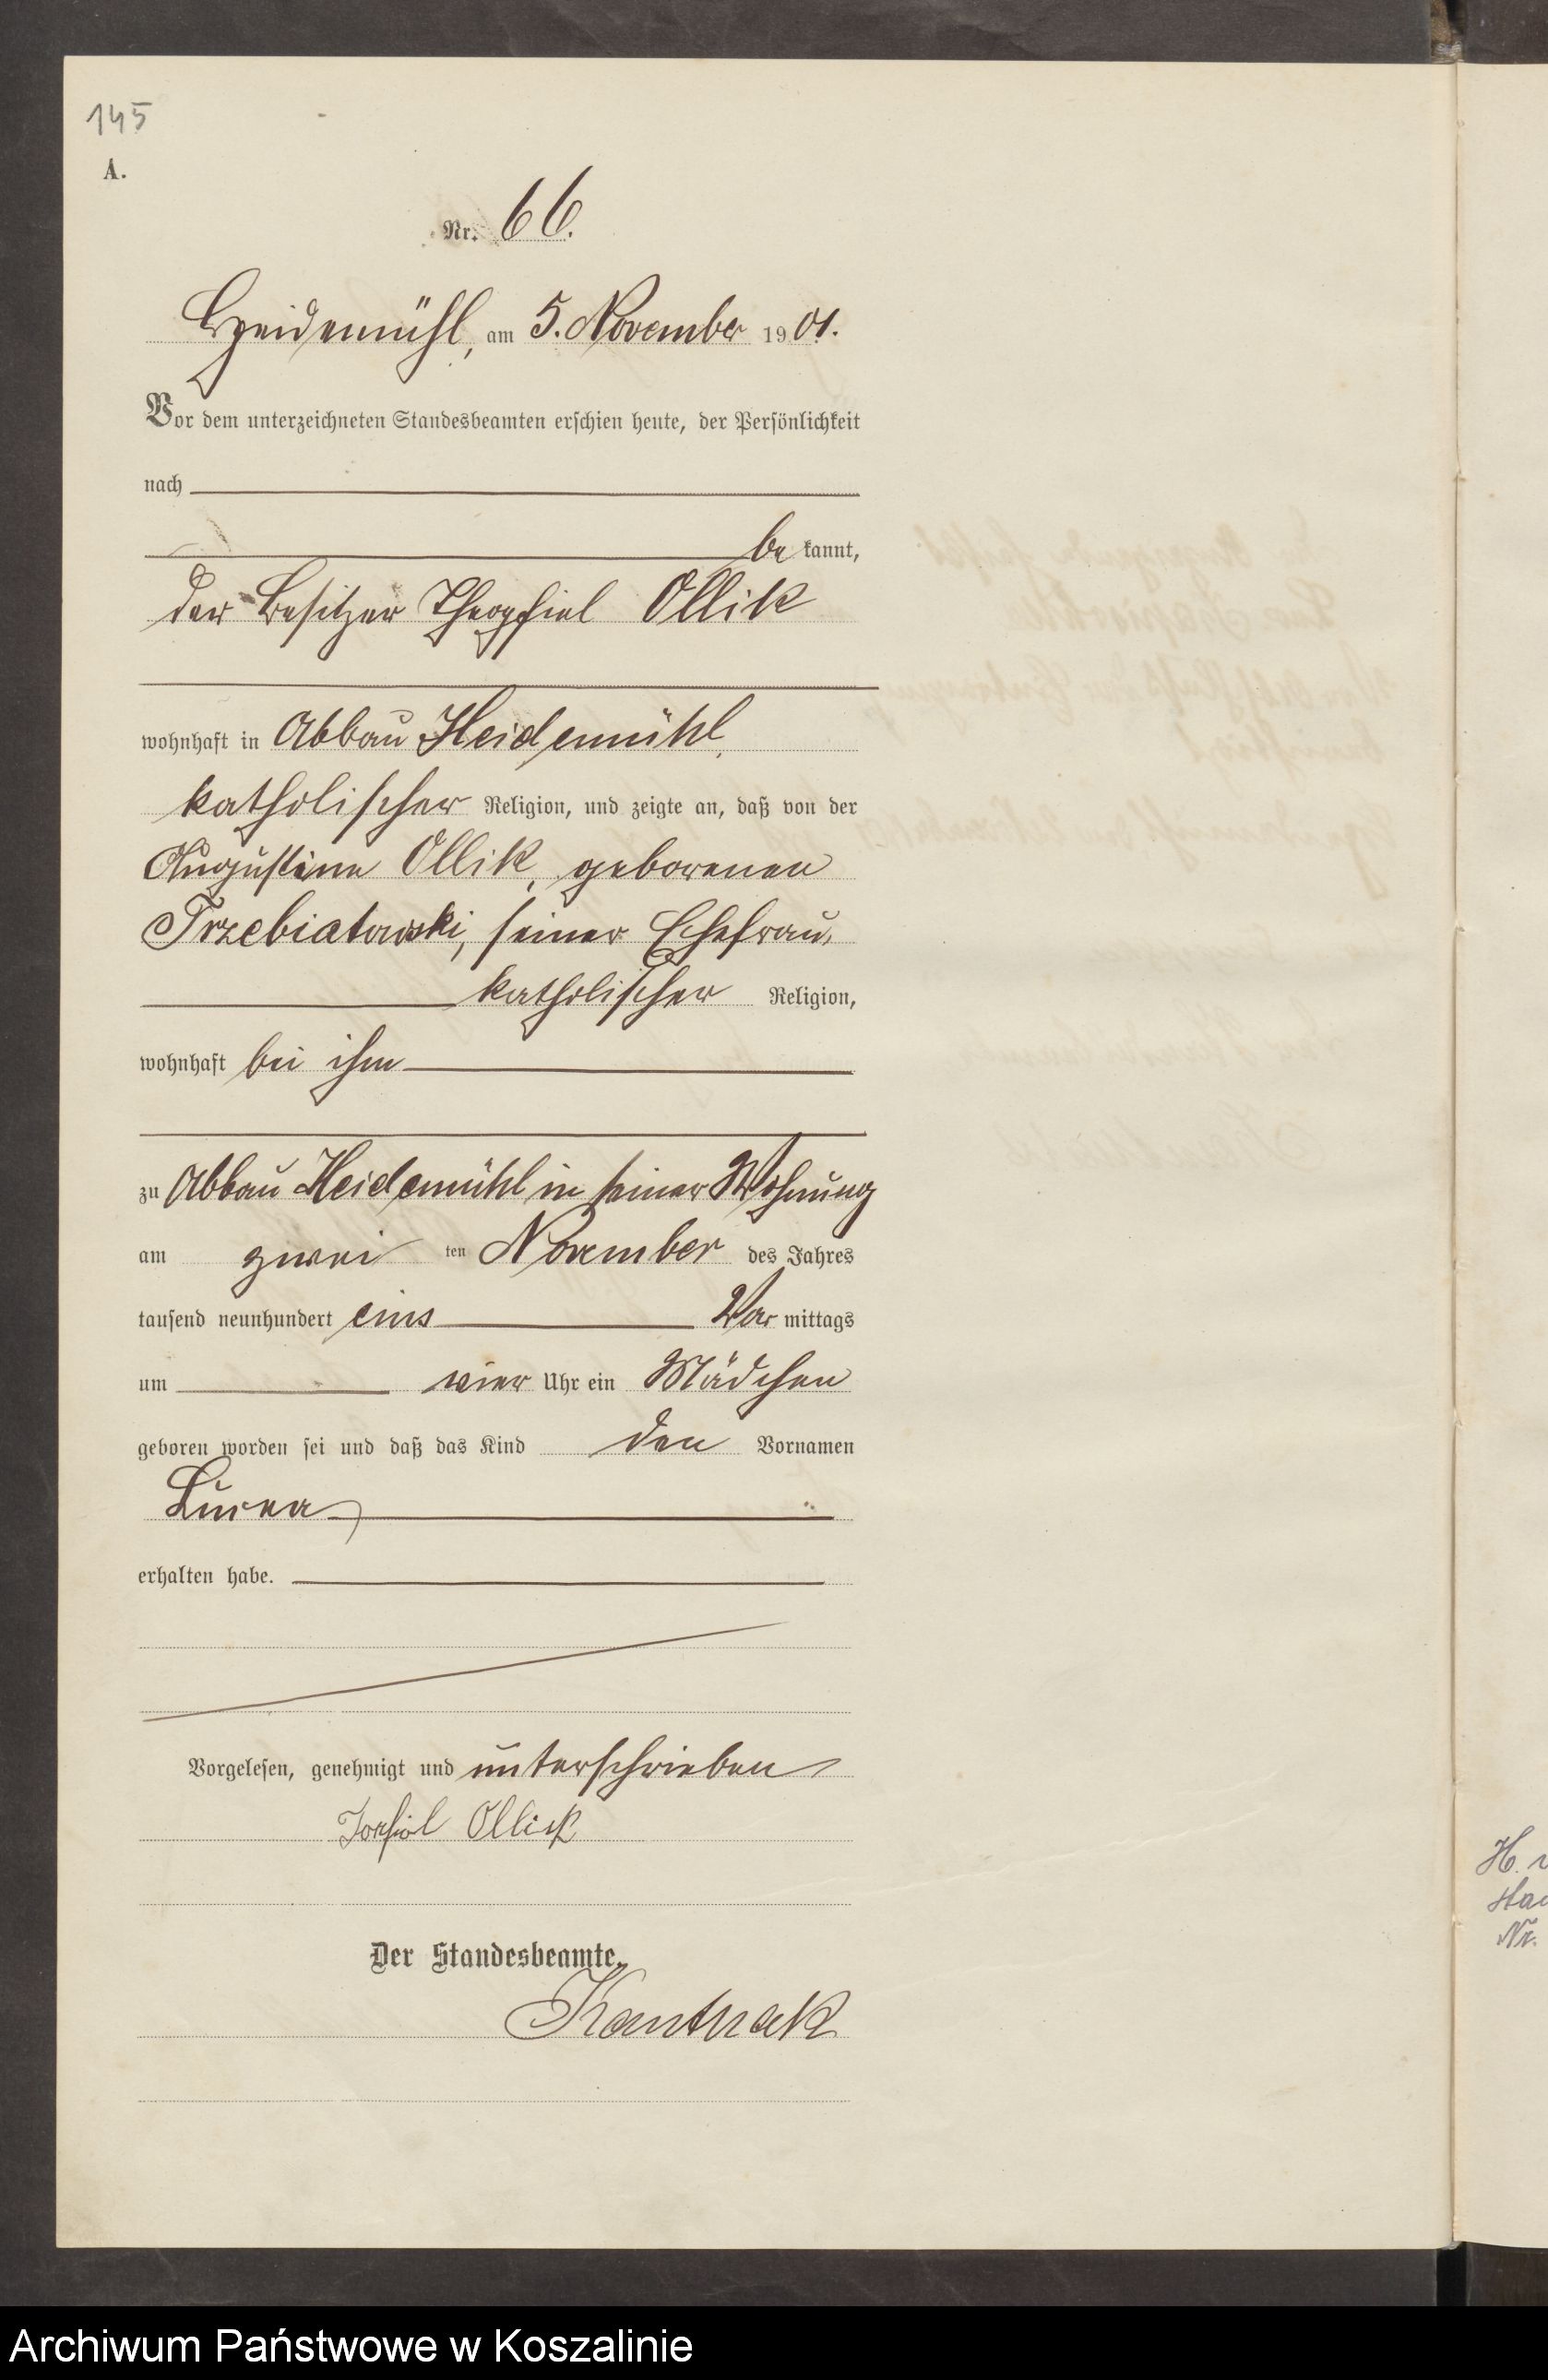 145
A.
Nr. 66.
Heidemühl, am 5. November 1901.
Vor dem unterzeichneten Standesbeamten erschien heute, der Persönlichkeit
nach
be kannt,
der Besitzer Theophiel Ollik
wohnhaft in Abbau Heidemühl,
katholischer Religion, und zeigte an, daß von der
Augustine Ollik, geborenen
Trzebiatowski, seiner Ehefrau,
katholischer Religion,
wohnhaft bei ihm
zu Abbau Heidemühl in seiner Wohnung
am zwei ten November des Jahres
tausend neunhundert eins Vor mittags
um vier Uhr ein Mädchen
geboren worden sei und daß das Kind den Vornamen
erhalten habe.
Vorgelesen, genehmigt und unterschrieben
Ollick
Der Standesbeamte.
Kantrak
H.
Nr.
Archiwum Państwowe w Koszalinie